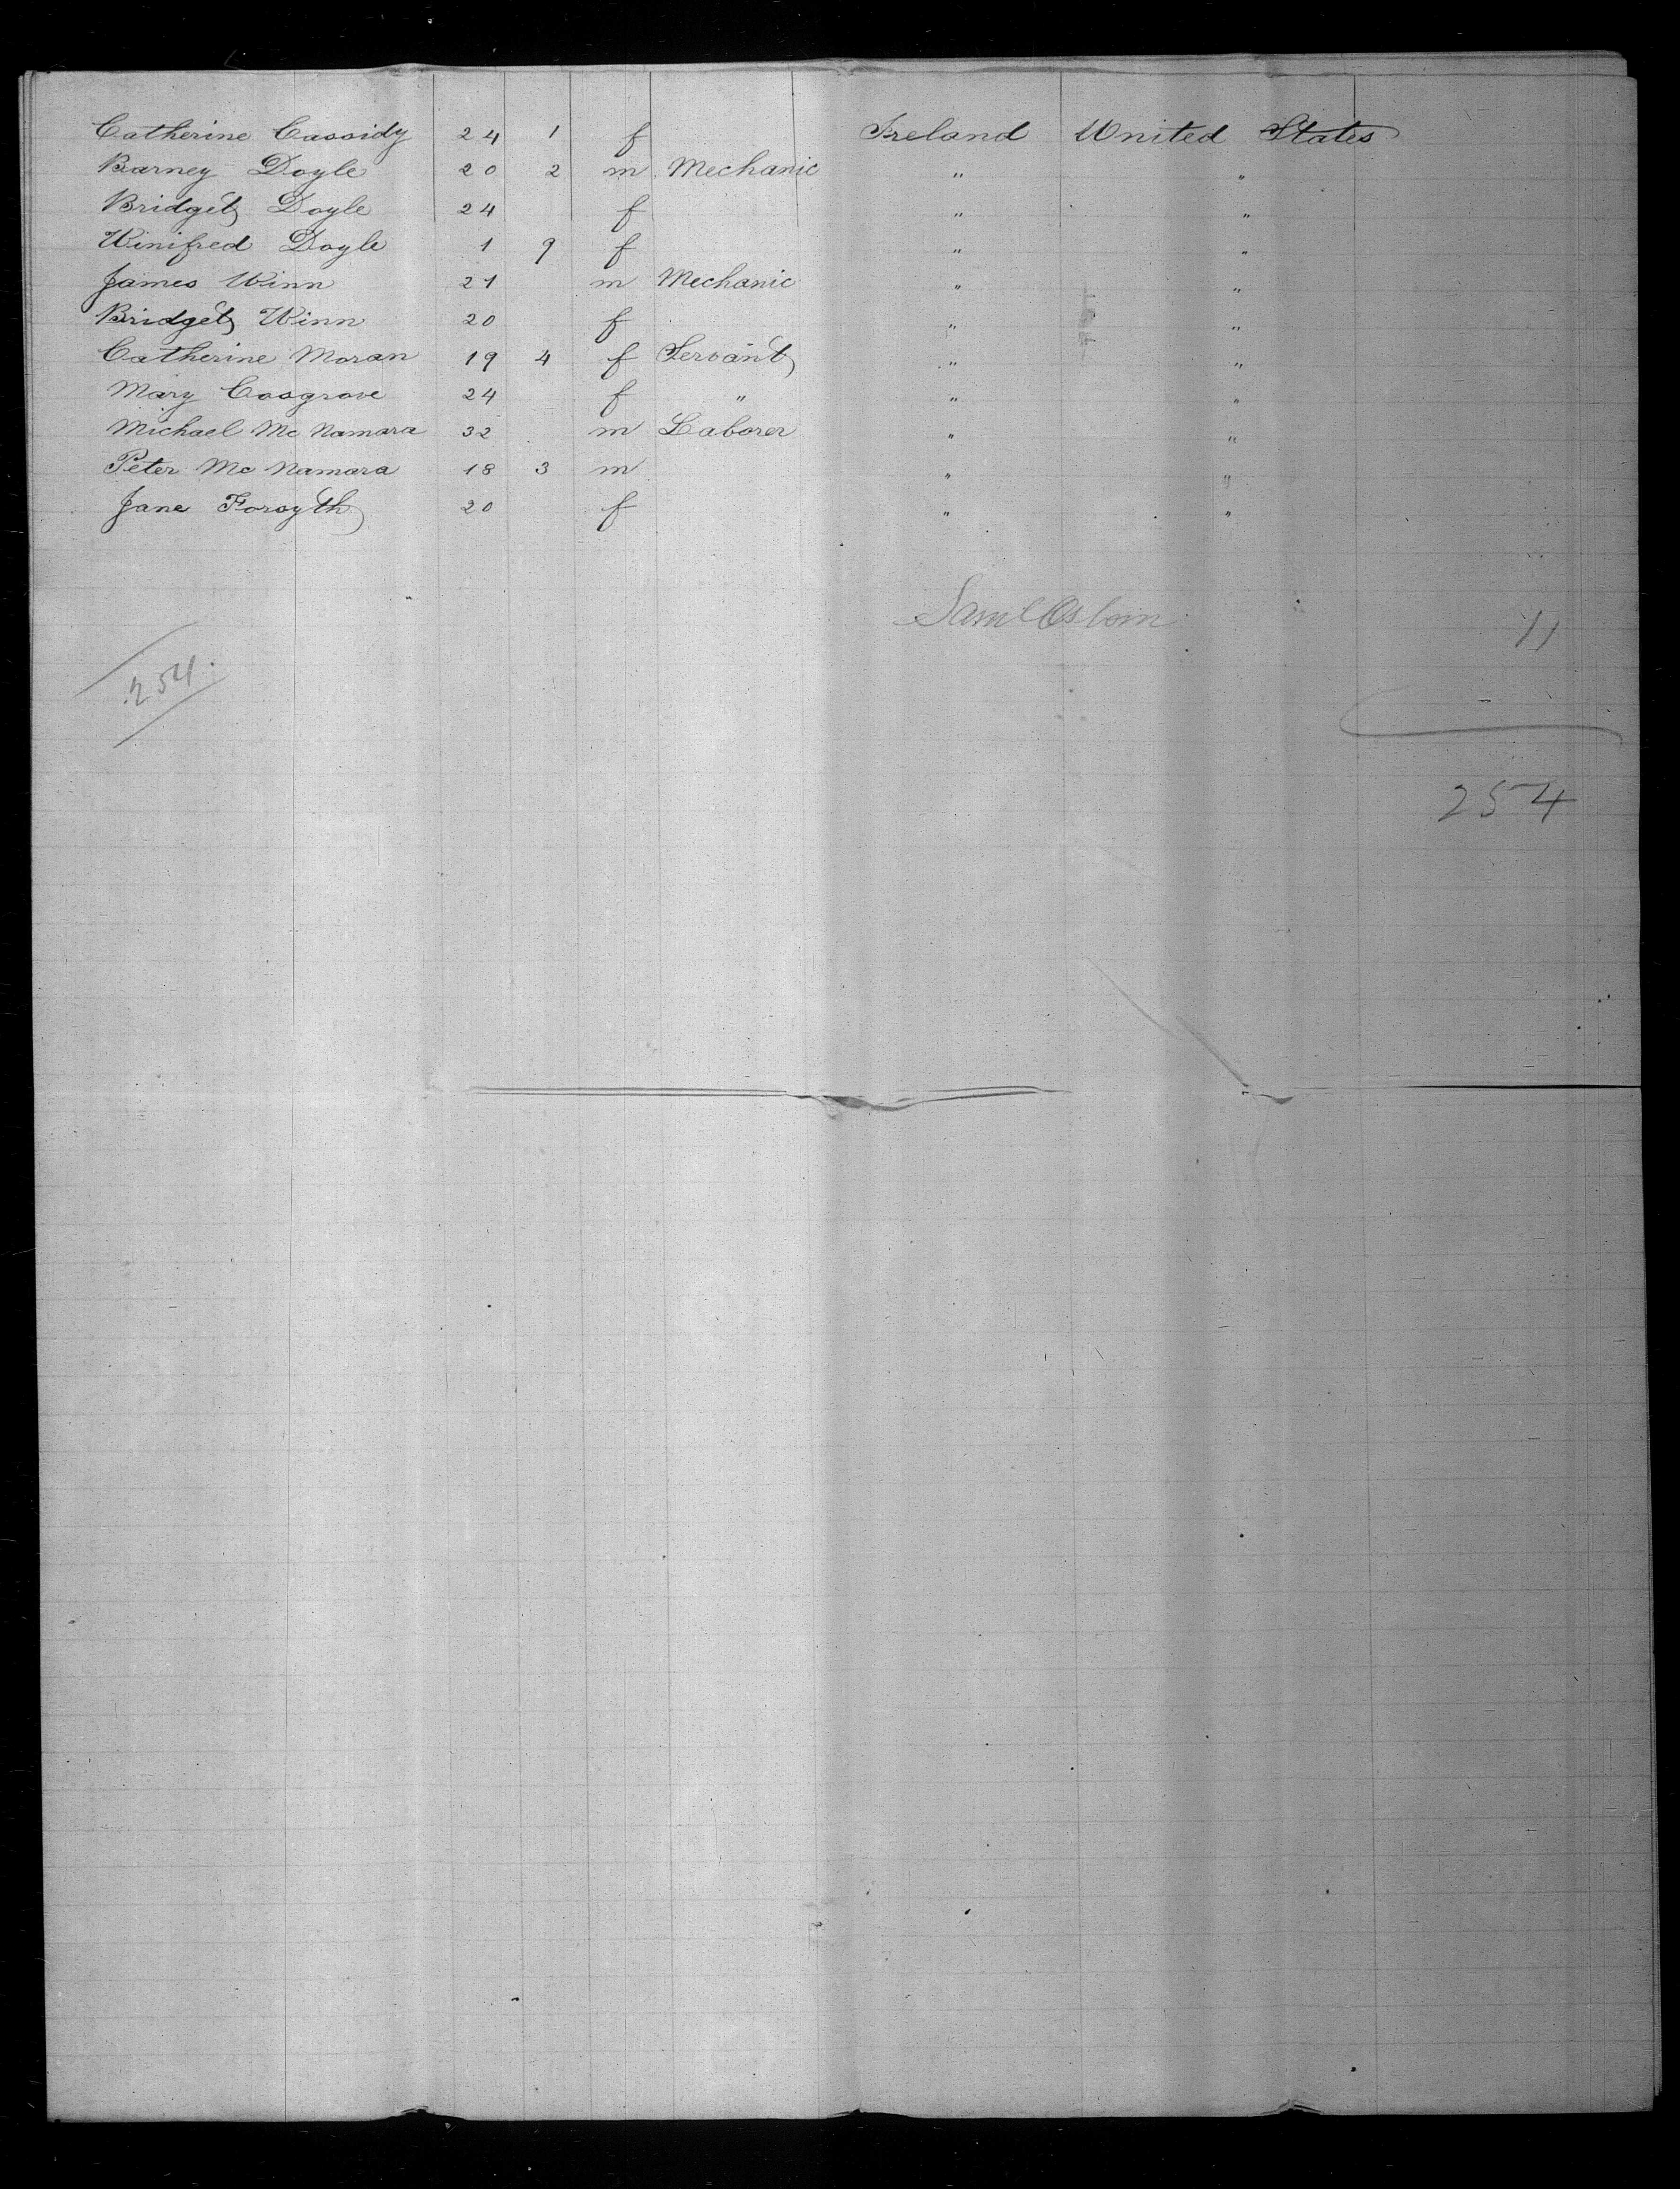 Catherine Cassidy 24 1 f Ireland United States
Barney Doyle 20 2 m Mechanic " "
Bridget Doyle 24 f " "
Winifred Doyle 1 9 f " "
James Winn 21 m Mechanic " "
Bridget Winn 20 f " "
Catherine Moran 19 4 f Servant " "
Mary Cosgrove 24 f " " "
Michael Mc Namara 32 m Laborer " "
Peter Mc Namara 18 3 m " "
Jane Forsyth 20 f " "
Saml Osborn
11
254.
254